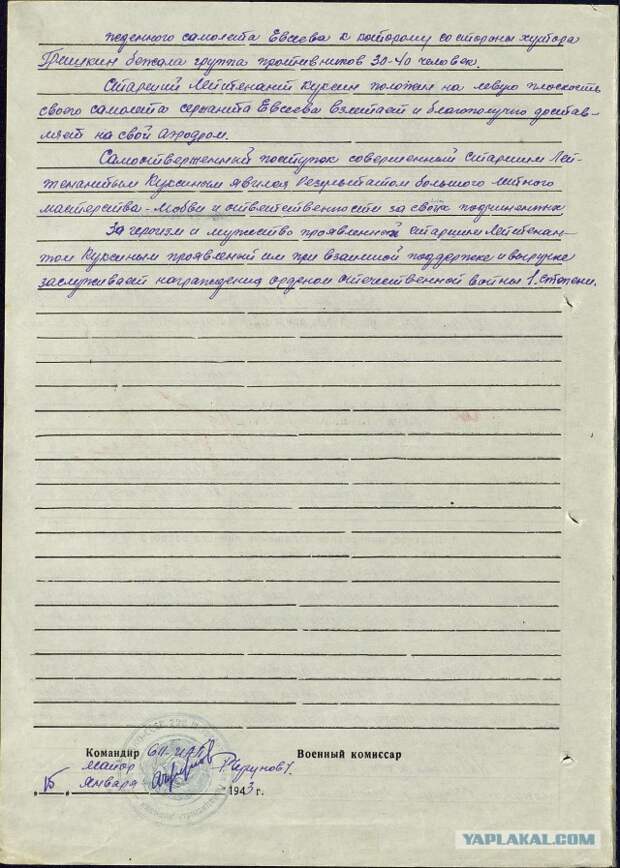 жденного самолета Евсеева к которому со стороны хутора
Гришкин бежала группа противников 30-40 человек.
Старший Лейтенант Куксин положил на левую плоскость
своего самолета сержанта Евсеева взлетает и благополучно достав-
ляет на свой аэродром.
Самоотверженный поступок совершенный Старшим Лей-
тенантым Куксиным явился результатом большого летного
мастерства - Любви и ответственности за своих подчиненных
За героизм и мужество проявленное старшим Лейтенан-
том Куксиным проявленый им при взаимной поддержке и выручке
заслуживает награждения орденом отечественной войны 1. степени.
Командир
Военный комиссар
майор
15 Января 1943 г.
YAPLAKAL.COM